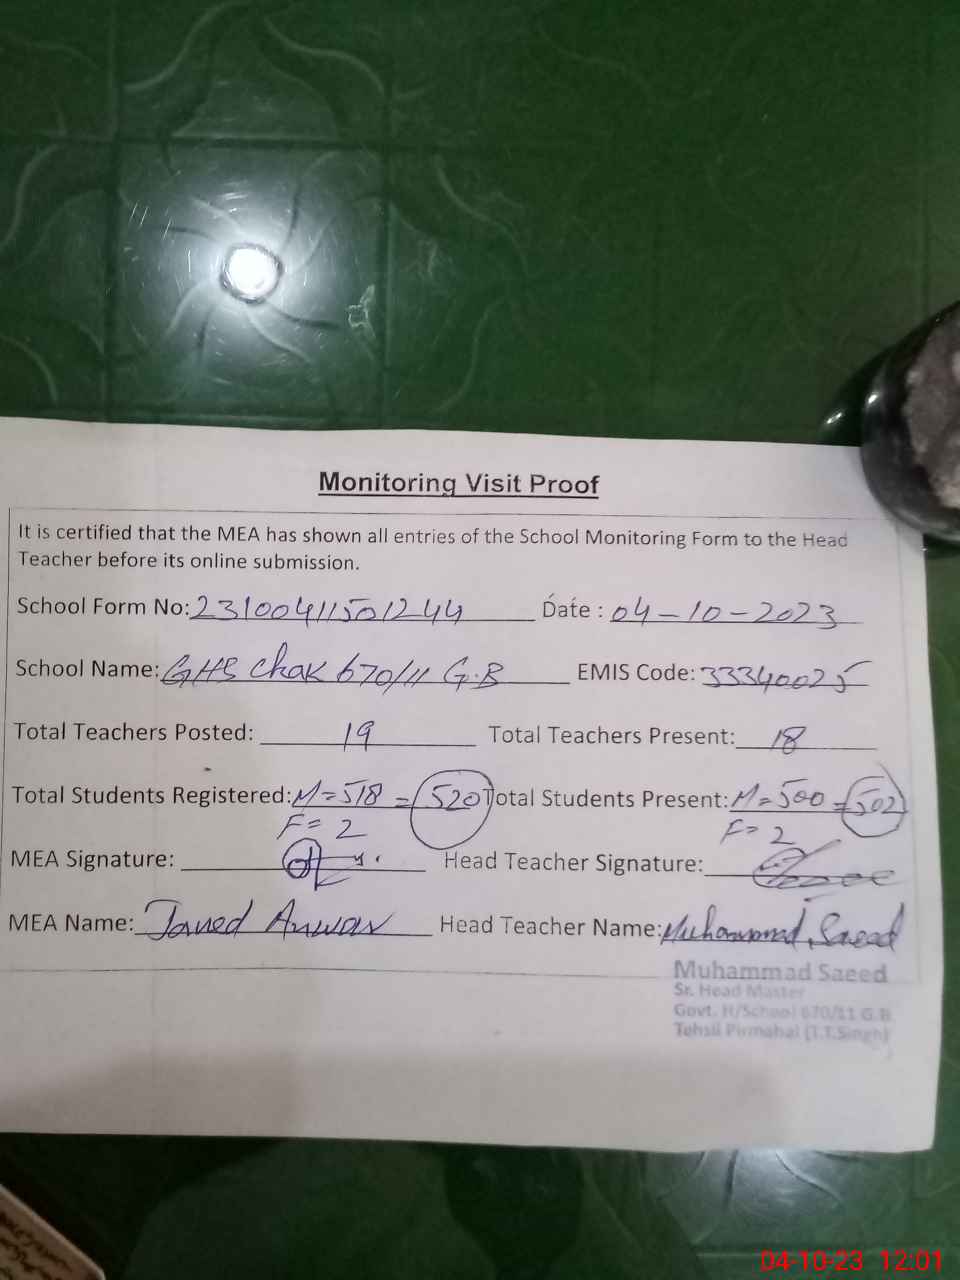 Monitoring Visit Proof
It is certified that the MEA has shown all entries of the School Monitoring Form to the Head
Teacher before its online submission.
School Form No: 23100411501244 Date : 04-10-2023
School Name: GHS Chak 670/11 G.B EMIS Code: 33340025
Total Teachers Posted: 19 Total Teachers Present: 18
Total Students Registered: M=518 = 520 Total Students Present: M=500 = 502
F=2 F=2
MEA Signature: Head Teacher Signature:
MEA Name: Javed Anwar Head Teacher Name: Muhammad Saeed
Muhammad Saeed
Sr. Head Master
Govt. H/School 670/11 G.B
Tehsil Pirmahal (T.T.Singh)
04-10-23 12:01